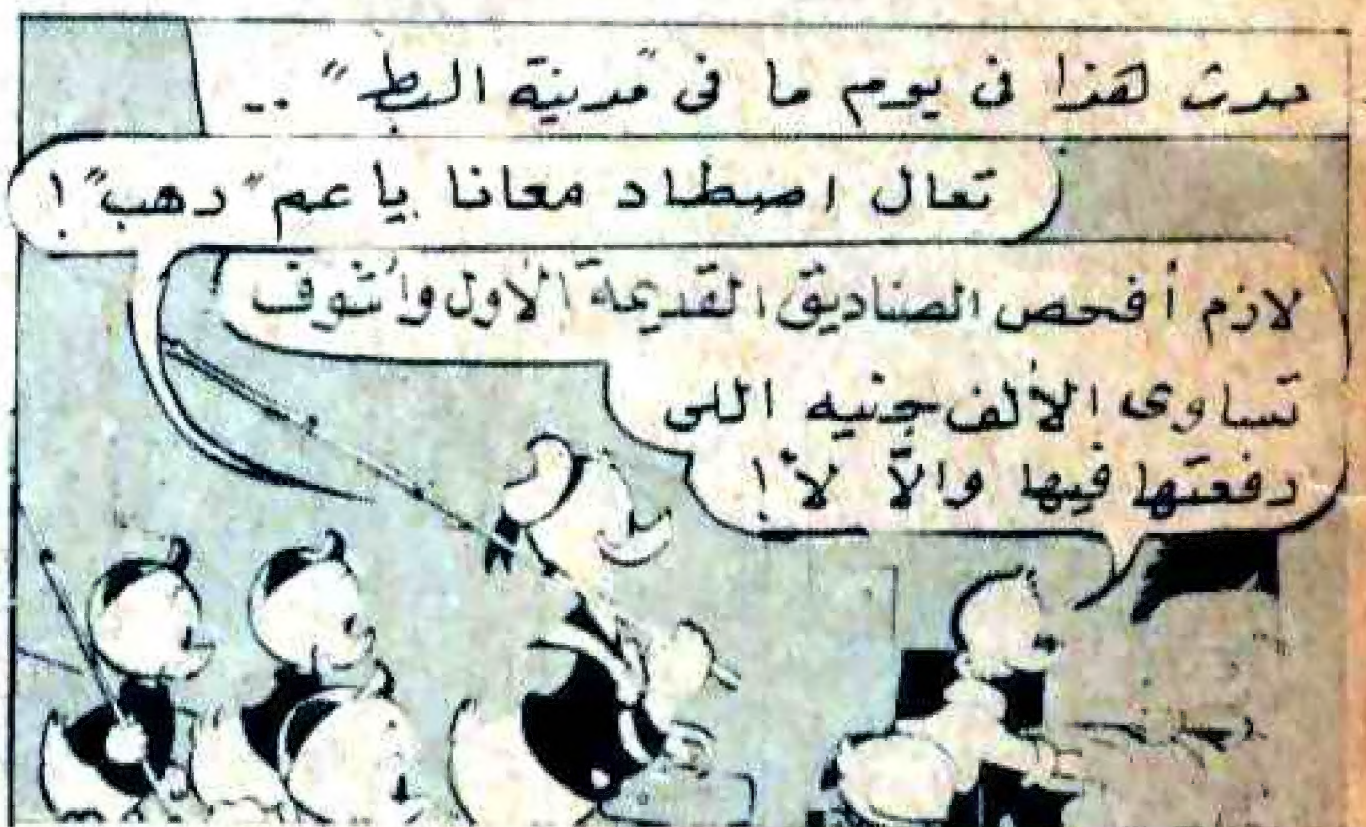 حدث هذا فى يوم ما فى "مدينة البط" ..
تعال اصطاد معانا ياعم "دهب"!
لازم أفحص الصناديق القديمة الأول وأشوف
تساوى الألف جنيه اللى
دفعتها فيها والاّ لأ!